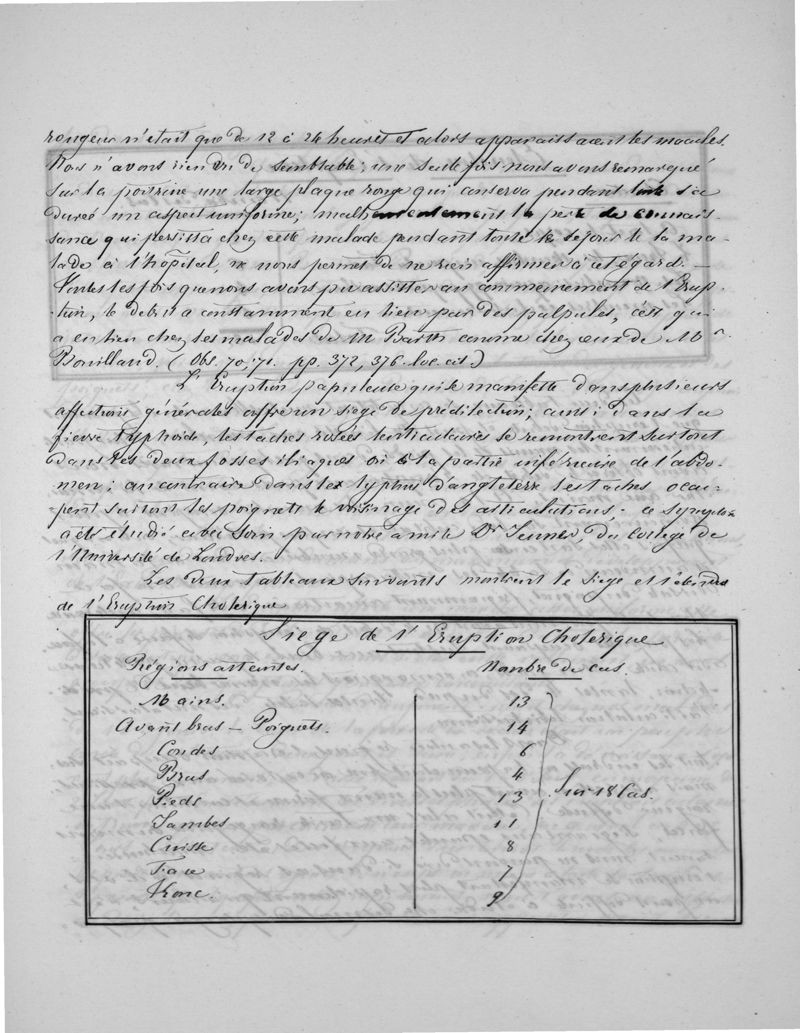 rougeur n'était que de 12 à 24 heures et alors apparaissaient les macules.
Nous n'avons rien vu de semblable; une seule fois nous avons remarqué
sur la poitrine une large plaque rouge qui conserva pendant toute sa
durée un aspect uniforme; malheureusement la perte de connais-
sance qui persista chez cette malade pendant toute le séjour de la ma-
lade à l'hôpital, ne nous permet de ne rien affirmer à cet égard. —
Toutes les fois que nous avons pu assister au commencement de l'Erup-
-tion, le debut a constamment eu lieu par des palpules, c'est qui
a eu lieu chez les malades de M Barth comme chez ceux de Mr.
Bouillaud. (Obs. 70, 71. pp. 372, 376. loc. cit.)
L'Eruption papuleuse qui se manifeste dans plusieurs
affections générales offre un siege de prédilection; ainsi dans la
fievre typhoïde, les taches rosées lenticulaires se remontrent surtout
dans les deux fosses iliaques où à la partie inférieure de l'abdo-
men; au contraire dans le typhus d'angleterre les taches occu-
-pent surtout les poignets le voisinage des articulations - ce symptôme
a été étudié avec soin par notre ami le Dr. Jenner, du College de
l'Université de Londres.
Les deux tableaux suivants montrent le siege et l'étendue
de l'Eruption Cholerique
Siege de l'Eruption Cholerique
Régions atteintes. Nombre de cas.
Mains. 13
Avant bras — Poignets. 14
Coudes 6
Bras 4
Pieds 13 Sur 18 Cas.
Jambes 11
Cuisse 8
Face 7
Tronc. 9